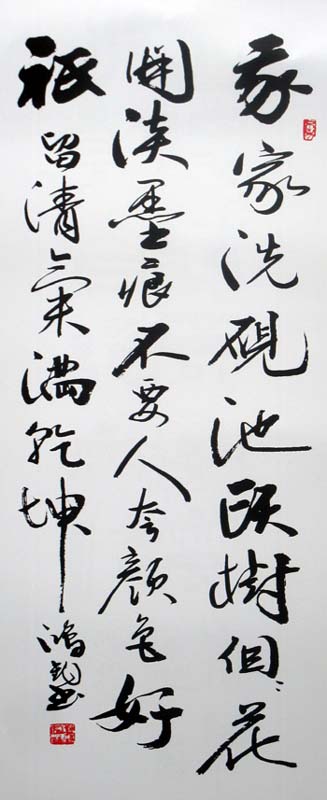 我家洗硯池頭樹個々花
開淡墨痕不要人夸顏色好
祇留清氣滿乾坤
鴻